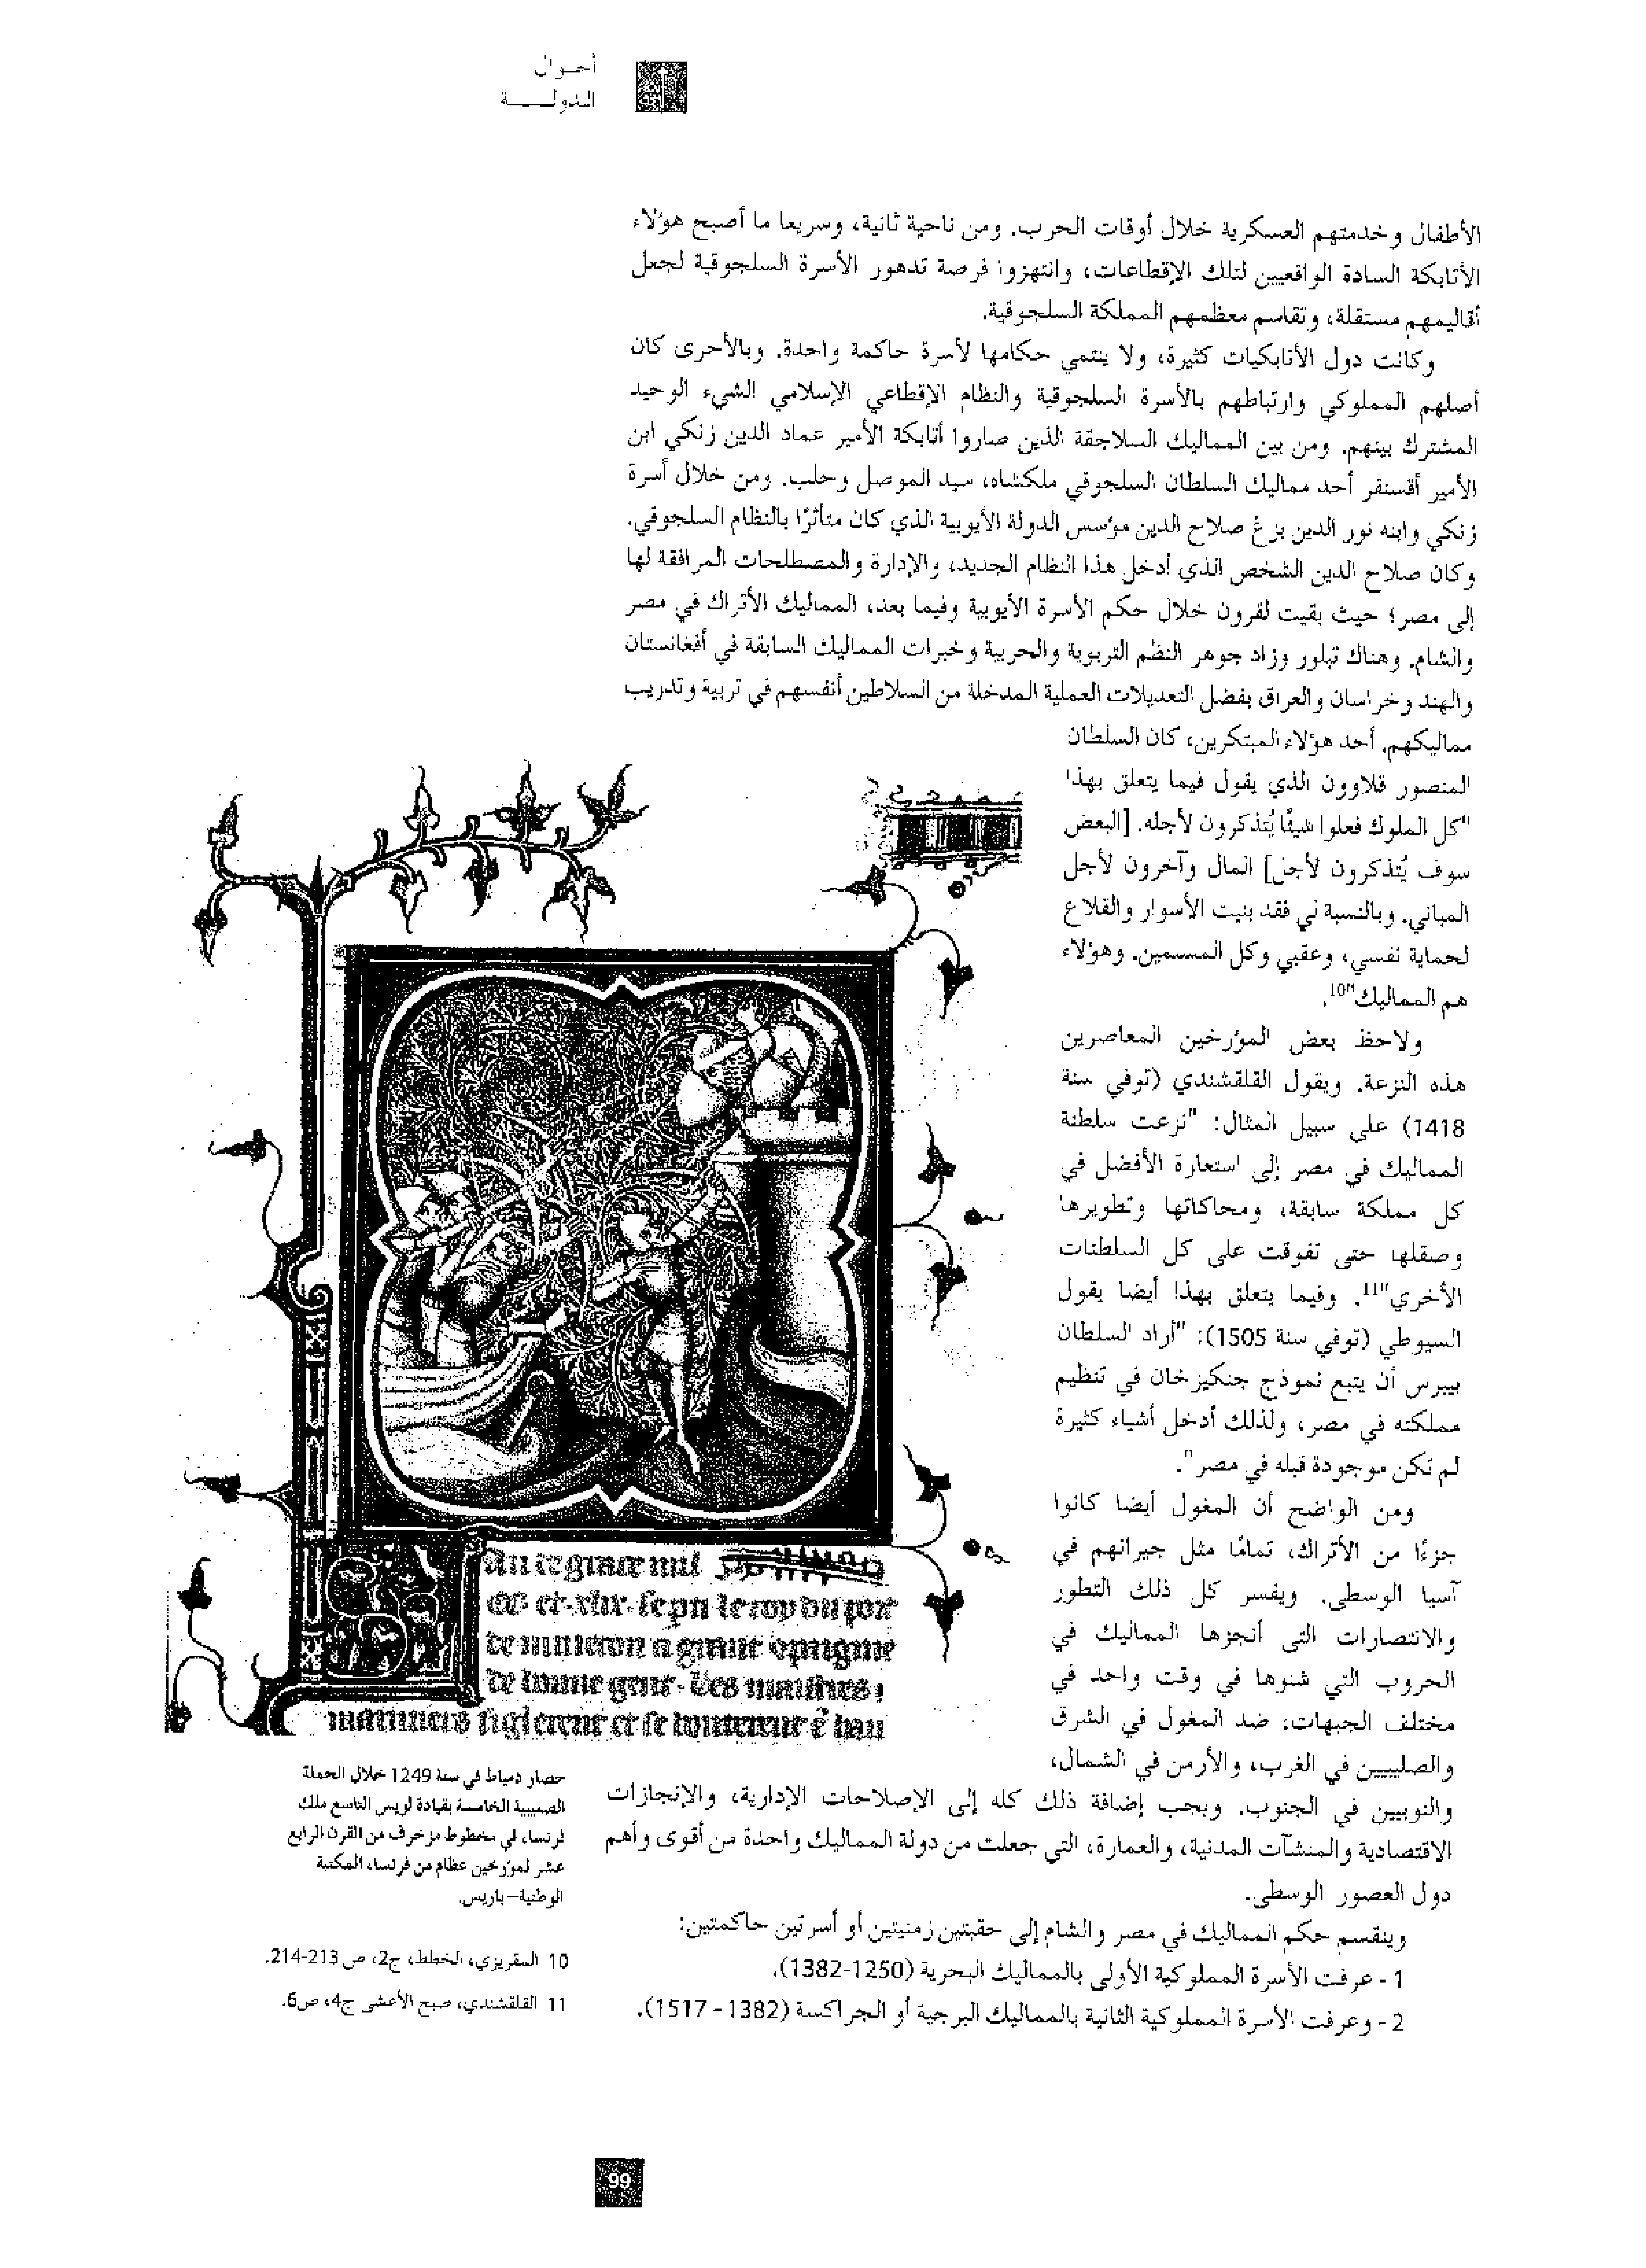 أحـوال
الدولـــــة
الأطفال وخدمتهم العسكرية خلال أوقات الحرب. ومن ناحية ثانية، وسريعا ما أصبح هؤلاء
الأتابكة السادة الواقعيين لتلك الإقطاعات، وانتهزوا فرصة تدهور الأسرة السلجوقية لجعل
أقاليمهم مستقلة، وتقاسم معظمهم المملكة السلجوقية.
وكانت دول الأتابكيات كثيرة، ولا ينتمي حكامها لأسرة حاكمة واحدة. وبالأحرى كان
أصلهم المملوكي وارتباطهم بالأسرة السلجوقية والنظام الإقطاعي الإسلامي الشيء الوحيد
المشترك بينهم. ومن بين المماليك السلاجقة الذين صاروا أتابكة الأمير عماد الدين زنكي ابن
الأمير أقسنقر أحد مماليك السلطان السلجوقي ملكشاه، سيد الموصل وحلب. ومن خلال أسرة
زنكي وابنه نور الدين بزغ صلاح الدين مؤسس الدولة الأيوبية الذي كان متأثرًا بالنظام السلجوقي.
وكان صلاح الدين الشخص الذي أدخل هذا النظام الجديد، والإدارة والمصطلحات المرافقة لها
إلى مصر؛ حيث بقيت لقرون خلال حكم الأسرة الأيوبية وفيما بعد، المماليك الأتراك في مصر
والشام. وهناك تبلور وزاد جوهر النظم التربوية والحربية وخبرات المماليك السابقة في أفغانستان
والهند وخراسان والعراق بفضل التعديلات العملية المدخلة من السلاطين أنفسهم في تربية وتدريب
مماليكهم. أحد هؤلاء المبتكرين، كان السلطان
المنصور قلاوون الذي يقول فيما يتعلق بهذا
"كل الملوك فعلوا شيئًا يُتذكرون لأجله. [البعض
سوف يُتذكرون لأجل] المال وآخرون لأجل
المباني. وبالنسبة لي فقد بنيت الأسوار والقلاع
لحماية نفسي، وعقبي وكل المسلمين. وهؤلاء
هم المماليك"10.
ولاحظ بعض المؤرخين المعاصرين
هذه النزعة. ويقول القلقشندي (توفي سنة
1418) على سبيل المثال: "نزعت سلطنة
المماليك في مصر إلى استعارة الأفضل في
كل مملكة سابقة، ومحاكاتها وتطويرها
وصقلها حتى تفوقت على كل السلطنات
الأخرى"11. وفيما يتعلق بهذا أيضا يقول
السيوطي (توفي سنة 1505): "أراد السلطان
بيبرس أن يتبع نموذج جنكيزخان في تنظيم
مملكته في مصر، ولذلك أدخل أشياء كثيرة
لم تكن موجودة قبله في مصر".
ومن الواضح أن المغول أيضا كانوا
جزءًا من الأتراك، تمامًا مثل جيرانهم في
آسيا الوسطى. ويفسر كل ذلك التطور
والانتصارات التي أنجزها المماليك في
الحروب التي شنوها في وقت واحد في
مختلف الجبهات: ضد المغول في الشرق
والصليبيين في الغرب، والأرمن في الشمال،
والنوبيين في الجنوب. ويجب إضافة ذلك كله إلى الإصلاحات الإدارية، والإنجازات
الاقتصادية والمنشآت المدنية، والعمارة، التي جعلت من دولة المماليك واحدة من أقوى وأهم
دول العصور الوسطى.
وينقسم حكم المماليك في مصر والشام إلى حقبتين زمنيتين أو أسرتين حاكمتين:
1 - عرفت الأسرة المملوكية الأولى بالمماليك البحرية (1250-1382).
2 - وعرفت الأسرة المملوكية الثانية بالمماليك البرجية أو الجراكسة (1382 - 1517).
حصار دمياط في سنة 1249 خلال الحملة
الصليبية الخامسة بقيادة لويس التاسع ملك
فرنسا، في مخطوط مزخرف من القرن الرابع
عشر لمؤرخين عظام من فرنسا، المكتبة
الوطنية–باريس.
10 المقريزي، الخطط، ج2، ص 213-214.
11 القلقشندي، صبح الأعشى ج4، ص6.
99